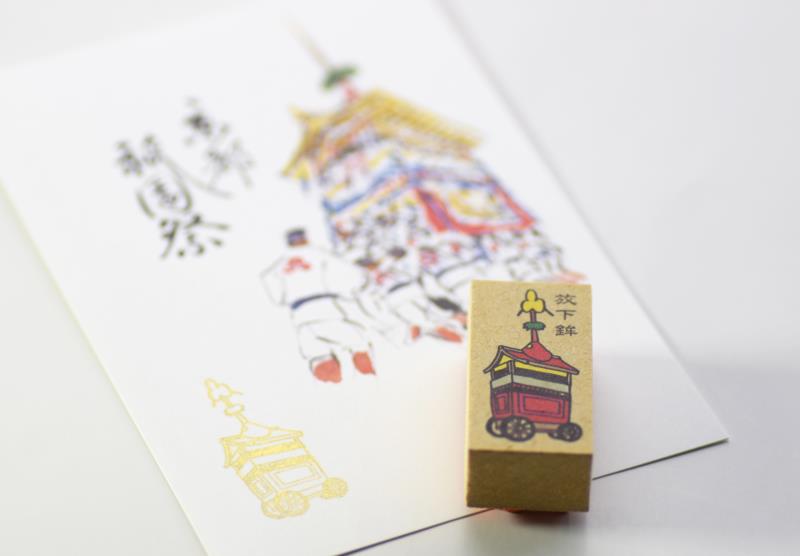 京都
祇園祭
放下鉾